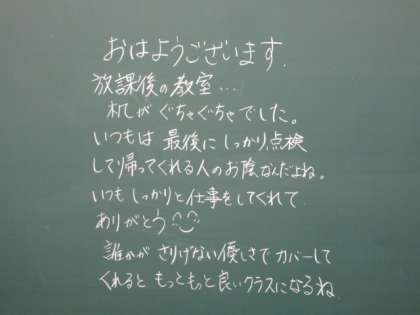 おはようございます.
放課後の教室...
机がぐちゃぐちゃでした。
いつもは最後にしっかり点検
して帰ってくれる人のお陰なんだよね。
いつもしっかりと仕事をしてくれて
ありがとう
誰かがさりげない優しさでカバーして
くれるともっともっと良いクラスになるね